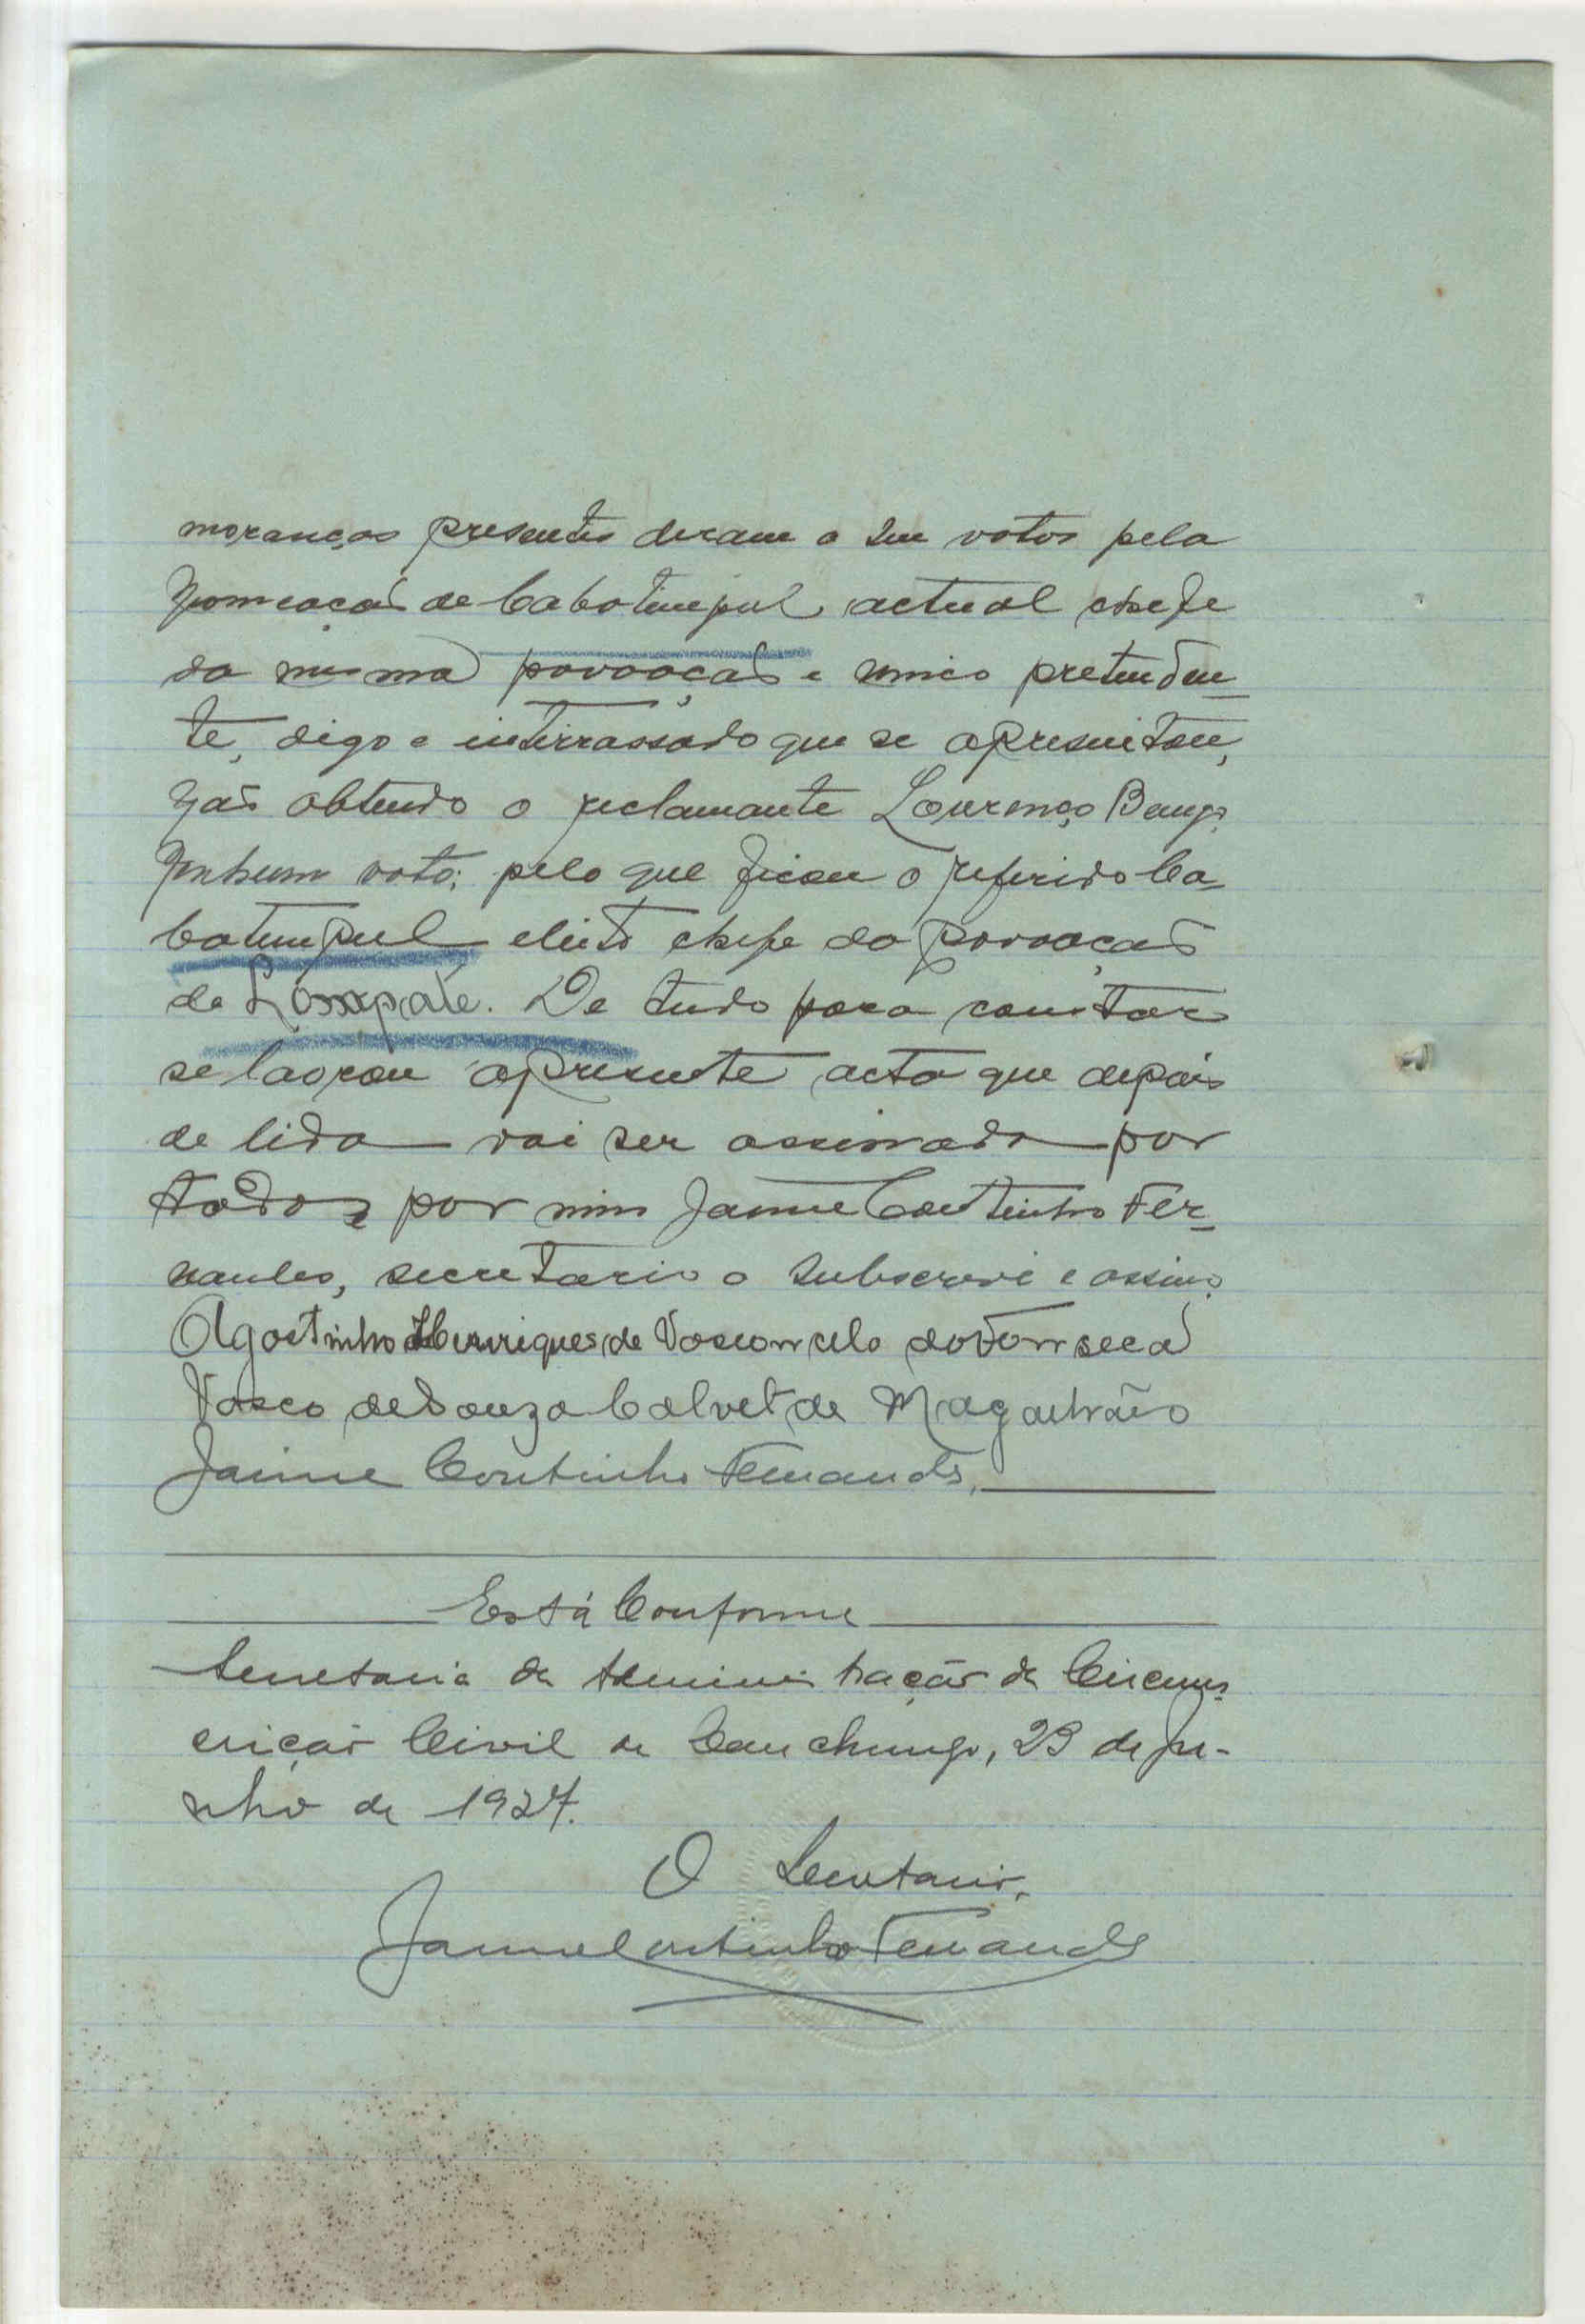 moranças presentes deram o seu votos pela
nomeação de Cabotimpul actual chefe
da mesma povoação e unico pretenden-
te, digo e interrassado que se apresentou,
não obtendo o reclamante Lourenço
nenhum voto; pelo que ficou o referido Ca-
batempul eleito chefe da povoação
de. De tudo para constar
se lavrou a presente acta que depois
de lida vai ser assinada por
todos e por mim Jaime Coutinho Fer-
nandes, secretario o subscrevi e assino.
Agostinho Henriques de Vasconcelo da Fonseca
Vasco de Souza Calvet de Magalhães
Jaime Coutinho Fernandes.
Está Conforme
Secretaria da Administração da Circuns-
crição Civil de Canchungo, 23 de Ju-
nho de 1927.
O Secretario,
Jaime Coutinho Fernandes